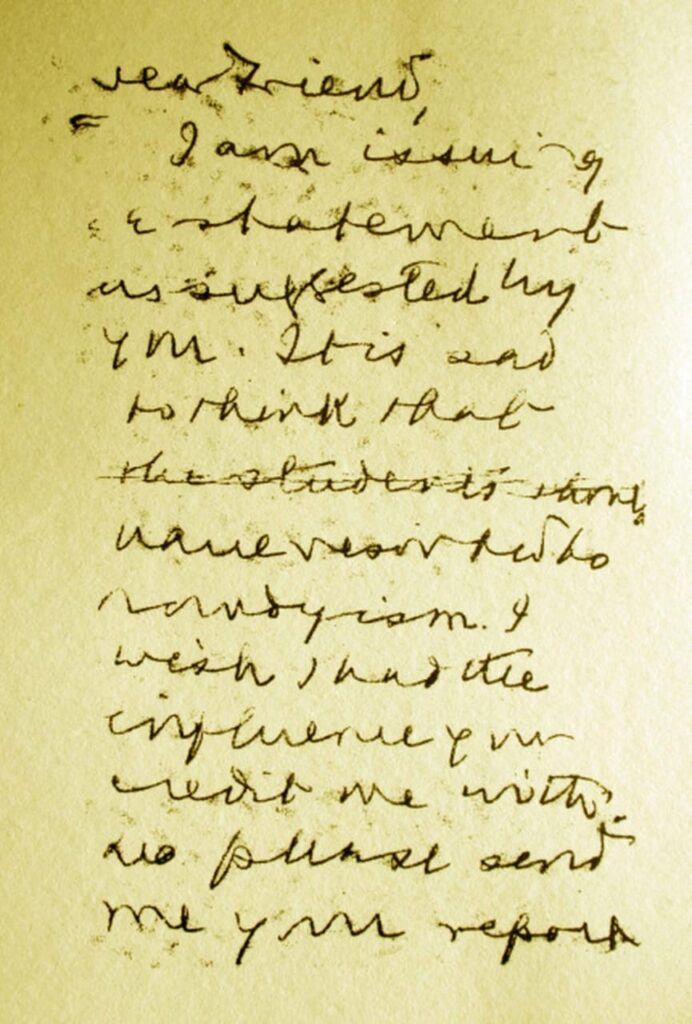 Dear Friend,
I am issuing
a statement
as suggested by
you. It is sad
to think that
the students should
have resorted to
rowdyism. I
wish I had the
influence you
credit me with.
Do please send
me your report